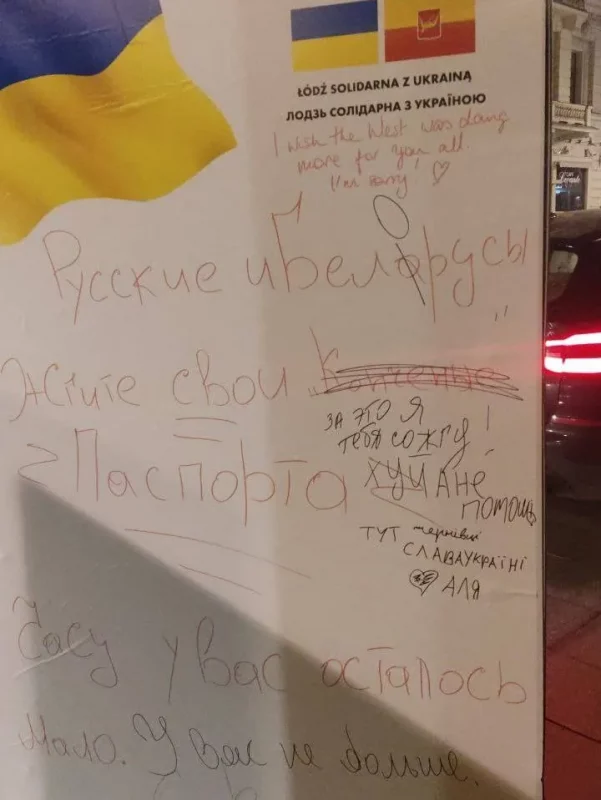 ŁÓDŹ SOLIDARNA Z UKRAINĄ
ЛОДЗЬ СОЛІДАРНА З УКРАЇНОЮ
I wish the West was doing
more for you all.
I'm sorry ♡
Русские и Белорусы
Жгите свои
ЗА ЭТО Я
ТЕБЯ СОЖГУ!
Паспорта
ХУЙ А НЕ
ПОМОЩЬ
ТУТ
СЛАВА УКРАЇНІ
АЛЯ
Часу у вас осталось
Мало. У вас не больше.